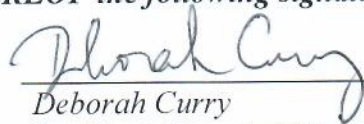 the following
Deborah Curry
Deborah Curry